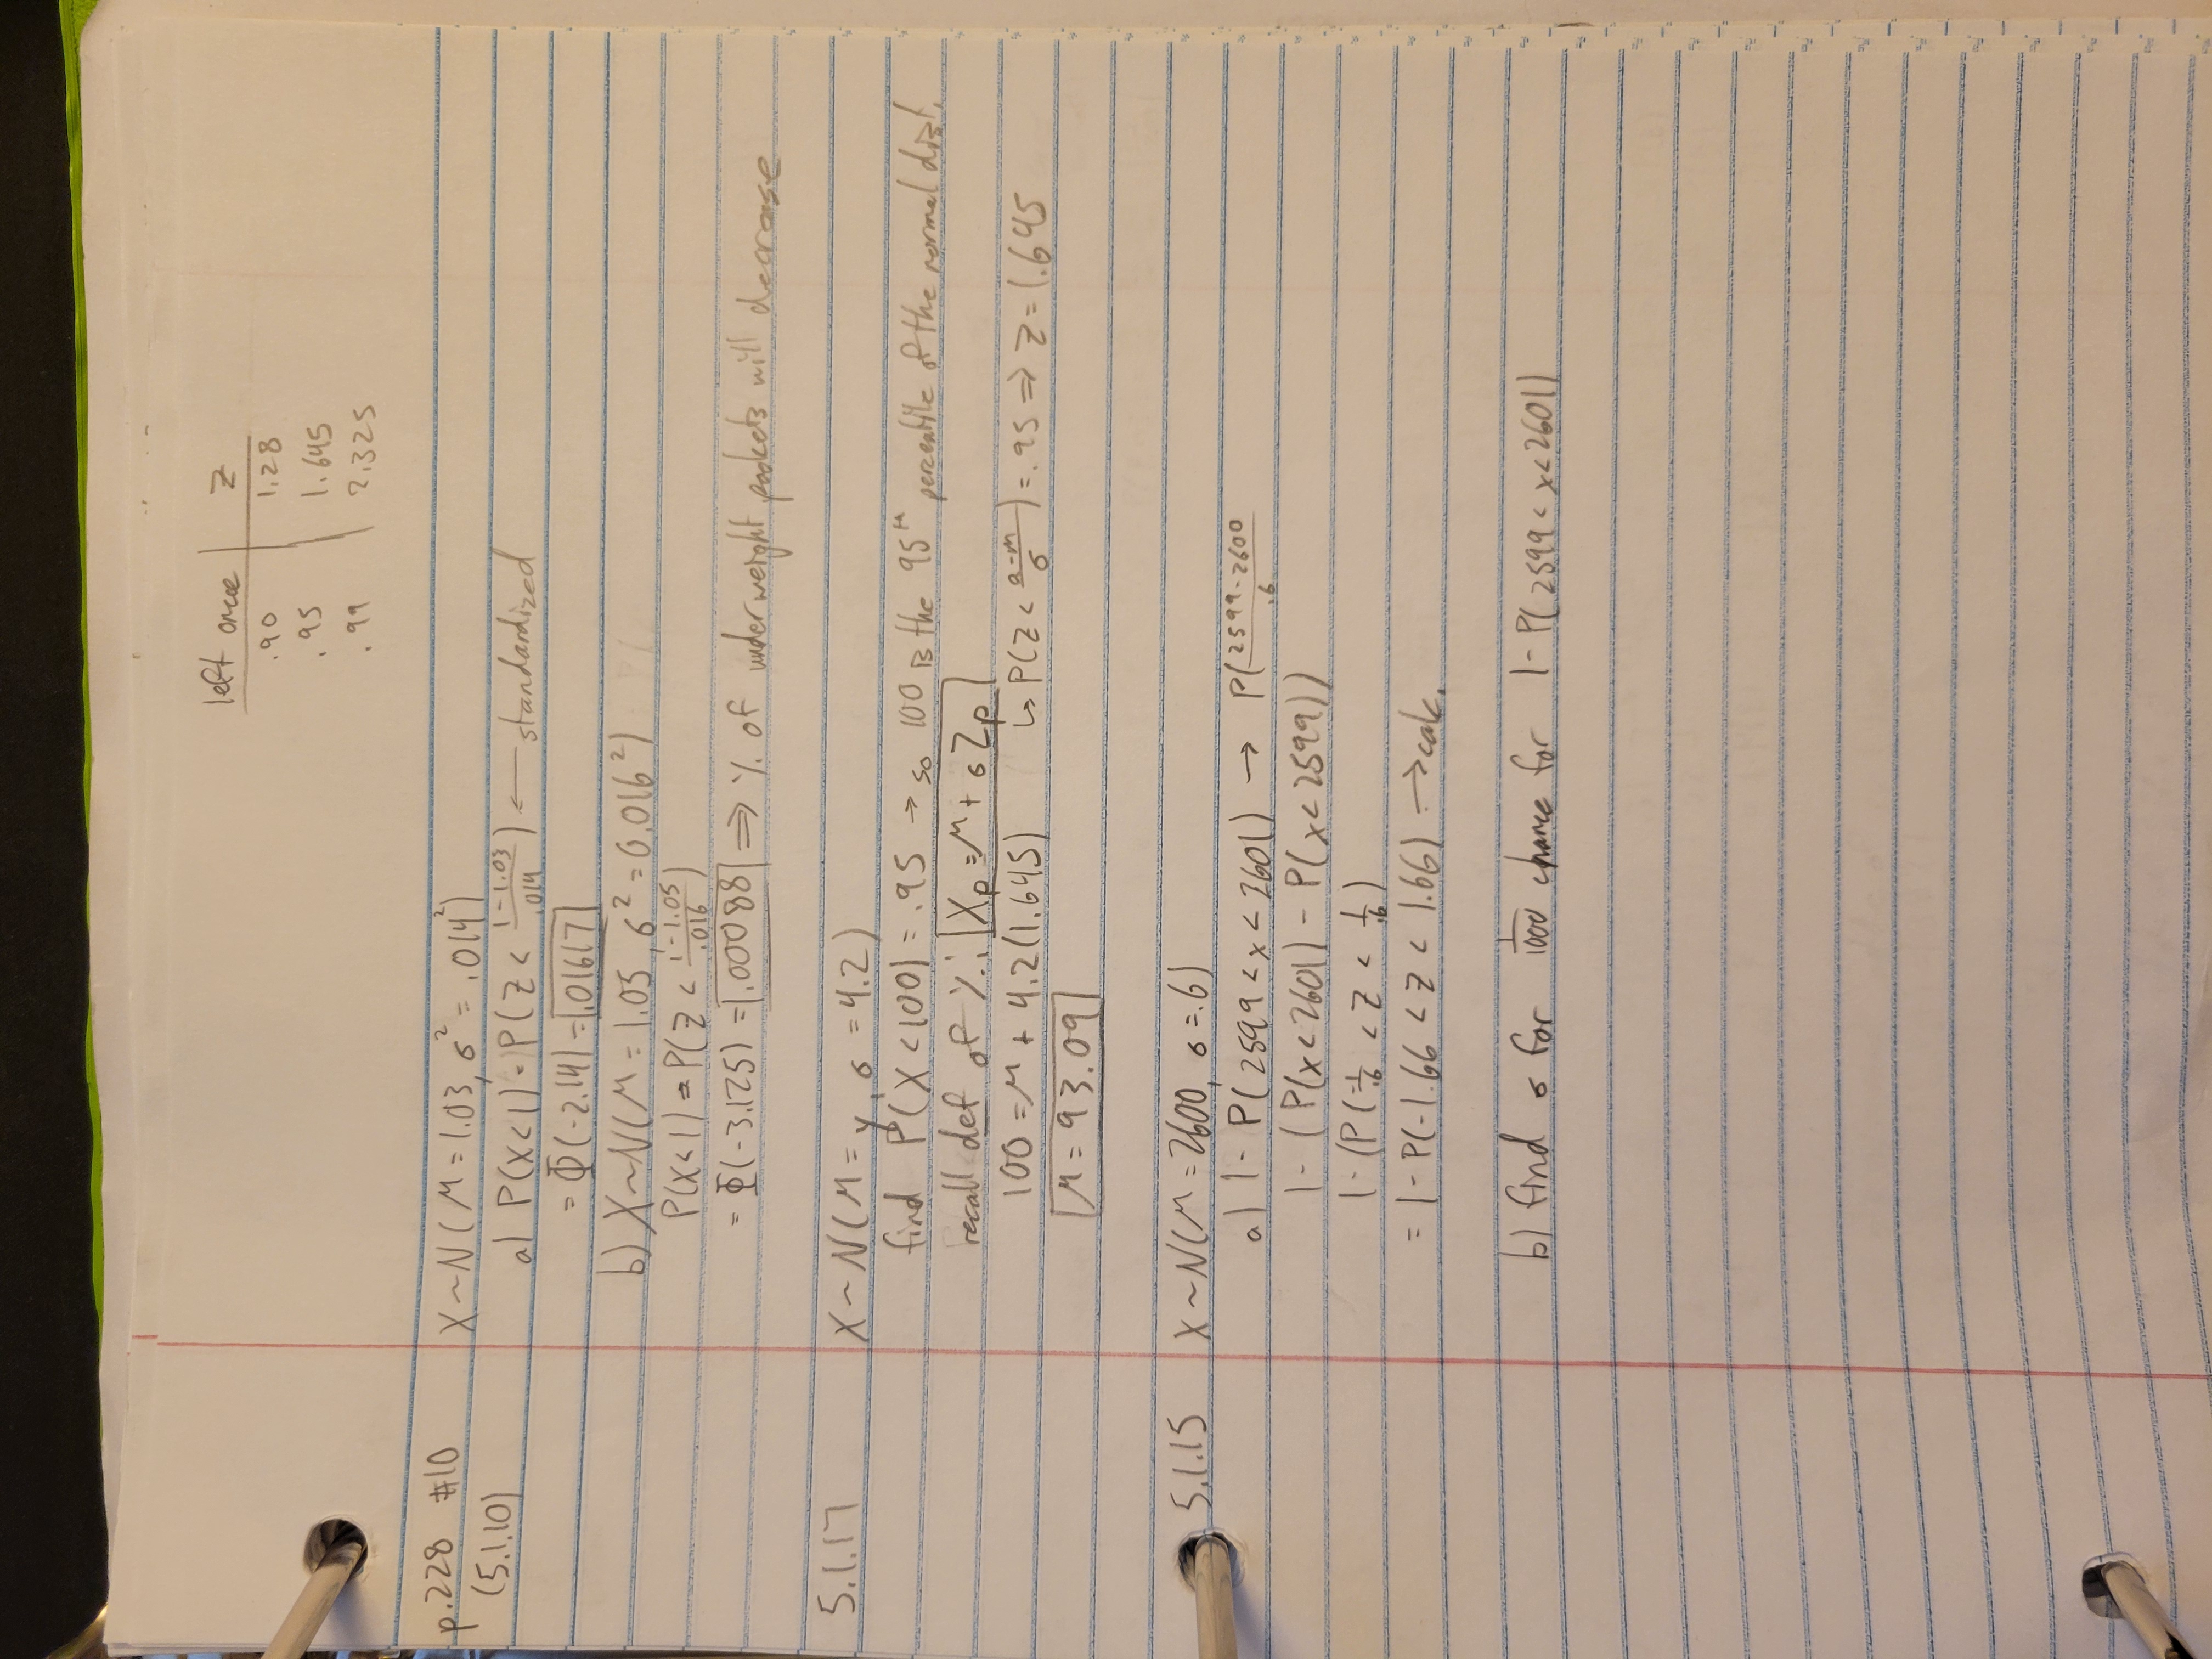 left area | Z
.90 | 1.28
.95 | 1.645
.99 | 2.325
p.228 #10
(5.1.10)
X~N(μ=1.03, σ² = .014²)
a) P(X<1) = P(Z < (1-1.03)/.014) ← standardized
= Φ(-2.14) = .01617
b) X~N(μ=1.05, σ²=0.016²)
P(X<1) = P(Z < (1-1.05)/.016)
= Φ(-3.125) = .00088 ⇒ % of underweight packets will decrease
5.1.17 X~N(μ=y, σ=4.2)
find P(X<100) = .95 → so 100 is the 95th percentile of the normal dist.
recall def of %: Xp=μ+σZp
100 = μ + 4.2(1.645) ↳ P(Z < (a-m)/σ) = .95 ⇒ Z=1.645
μ = 93.09
5.1.15 X~N(μ=2600, σ=.6)
a) 1- P(2599 < x < 2601) → P((2599-2600)/.6
1- (P(x<2601) - P(x<2599))
1-(P(-1/.6 < Z < 1/.6)
= 1-P(-1.66 < Z < 1.66) → calc.
b) find σ for 1/1000 chance for 1-P(2599<x<2601)